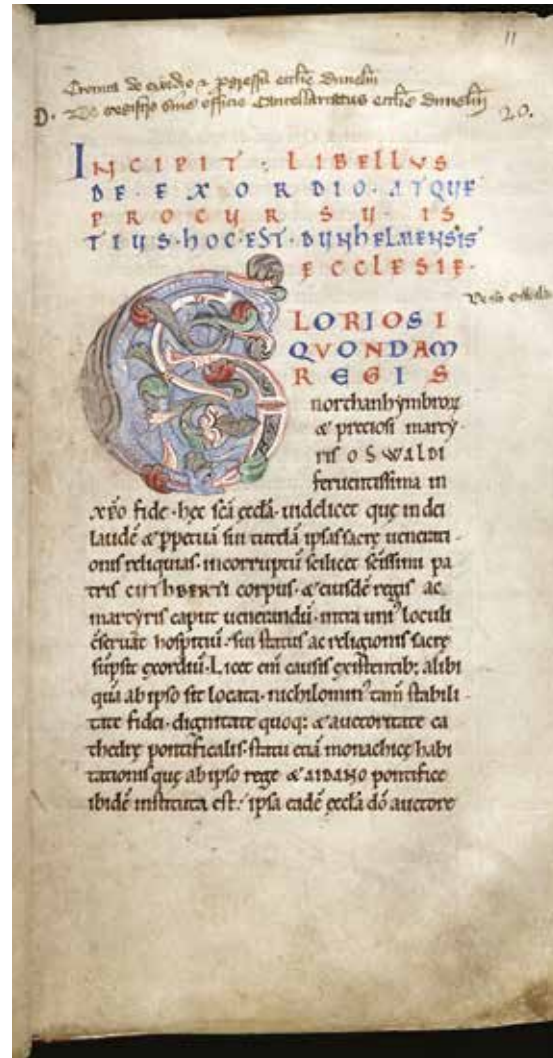 11
Cronica de exordio & p̱gressu ecclie Dunelm̄
D. De registro siue officio Cancellariatus ecclie Dunelm̄ 20.
INCIPIT · LIBELLVS
DE · EXORDIO · ATQUE
PROCURSU · IS
TIUS · HOC · EST · DUNHELMENSIS
ECCLESIE ·
GLORIOSI
QVONDAM
REGIS
northanhymbroꝝ
& preciosi marty
ris OSWALDI
feruentissima in
xp̄o fide · hec sc̄a ęccła · uidelicet que in dei
laudē & ꝑpetuā sui tutelā ipsas sacrę uenerati-
onis reliquias · incorruptū scilicet sc̄issimi pa
tris CUTHBERTI corpus · & eiusdē regis ac
martyris caput uenerandū · intra uni᾽ loculi
ꝯseruat hospitiū · sui status ac religionis sacrę
sūpsit exordiū · Licet eni causis existentib; alibi
quā ab ipso sit locata · nichilomin᾽ tam̄ stabili-
tate fidei · dignitate quoq; & auctoritate ca
thedrę pontificalis · statu etiā monachicę habi
tationis quę ab ipso rege & AIDANO pontifice
ibidē instituta est · ipsa eadē ęccła dō auctore